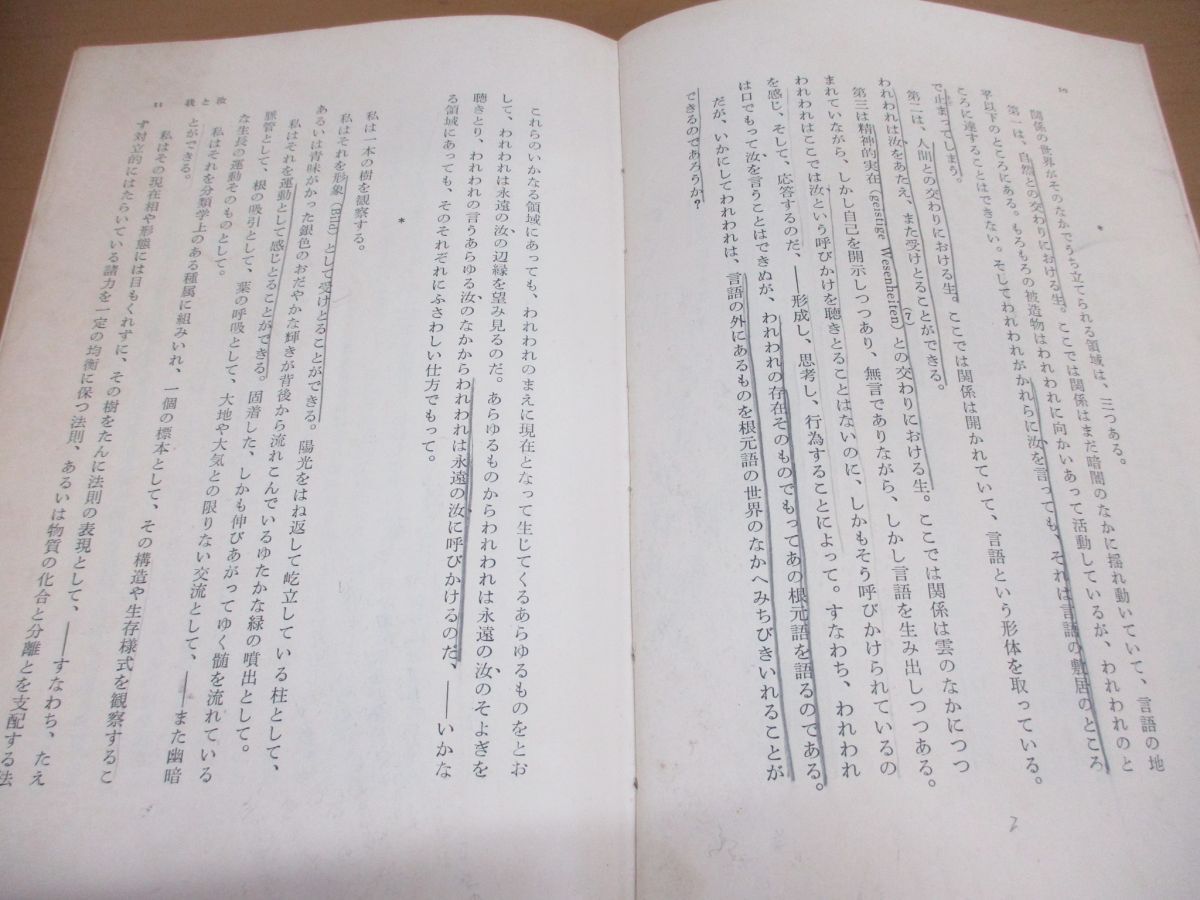 10
*
関係の世界がそのなかでうち立てられる領域は、三つある。
第一は、自然との交わりにおける生。ここでは関係はまだ暗闇のなかに揺れ動いていて、言語の地
平以下のところにある。もろもろの被造物はわれわれに向かいあって活動しているが、われわれのと
ころに達することはできない。そしてわれわれがかれらに汝を言っても、それは言語の敷居のところ
で止まってしまう。
第二は、人間との交わりにおける生。ここでは関係は開かれていて、言語という形体を取っている。
われわれは汝をあたえ、また受けとることができる。
第三は精神的実在(geistige Wesenheiten)(7)との交わりにおける生。ここでは関係は雲のなかにつつ
まれていながら、しかし自己を開示しつつあり、無言でありながら、しかし言語を生み出しつつある。
われわれはここでは汝という呼びかけを聴きとることはないのに、しかもそう呼びかけられているの
を感じ、そして、応答するのだ、——形成し、思考し、行為することによって。すなわち、われわれ
は口でもって汝を言うことはできぬが、われわれの存在そのものでもってあの根元語を語るのである。
だが、いかにしてわれわれは、言語の外にあるものを根元語の世界のなかへみちびきいれることが
できるのであろうか?
これらのいかなる領域にあっても、われわれのまえに現在となって生じてくるあらゆるものをとお
して、われわれは永遠の汝の辺縁を望み見るのだ。あらゆるものからわれわれは永遠の汝のそよぎを
聴きとり、われわれの言うあらゆる汝のなかからわれわれは永遠の汝に呼びかけるのだ、——いかな
る領域にあっても、そのそれぞれにふさわしい仕方でもって。
*
私は一本の樹を観察する。
私はそれを形象(Bild)として受けとることができる。陽光をはね返して屹立している柱として、
あるいは青味がかった銀色のおだやかな輝きが背後から流れこんでいるゆたかな緑の噴出として。
私はそれを運動として感じとることができる。固着した、しかも伸びあがってゆく髄を流れている
脈管として、根の吸引として、葉の呼吸として、大地や大気との限りない交流として、——また幽暗
な生長の運動そのものとして。
私はそれを分類学上のある種属に組みいれ、一個の標本として、その構造や生存様式を観察するこ
とができる。
私はその現在相や形態には目もくれずに、その樹をたんに法則の表現として、——すなわち、たえ
ず対立的にはたらいている諸力を一定の均衡に保つ法則、あるいは物質の化合と分離とを支配する法
我と汝
11